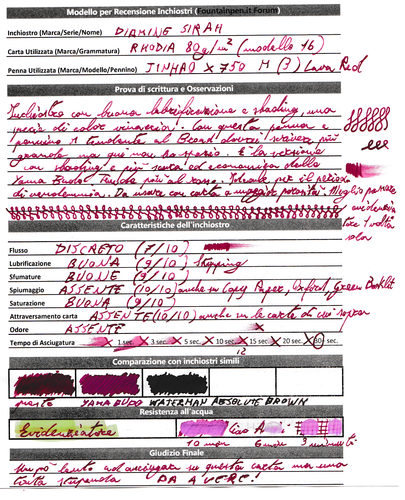 Modello per Recensione Inchiostri (Fountainpen.it Forum)
Inchiostro (Marca/Serie/Nome) DIAMINE SIRAH
Carta Utilizzata (Marca/Grammatura) RHODIA 80g/m² (modello 16)
Penna Utilizzata (Marca/Modello/Pennino) JINHAO X750 M (3) Lava Red
Prova di scrittura e Osservazioni
Inchiostro con buona lubrificazione e shading, una
specie di color vinaccia. Con questa penna e
pennino M tendente al Broad dovrei scivere più
grande ma qui non ho spazio. È la versione
con shading e più economica della
Yama Budo. Ideale per il periodo
di vendemmia. Da usare con carta a maggior porosità. Meglio passare
evidenziatore 1 volta
sola
Caratteristiche dell'inchiostro
Flusso DISCRETO (7/10)
Lubrificazione BUONA (9/10) stopping
Sfumature BUONE (9/10)
Spiumaggio ASSENTE (10/10) anche su Copy Paper, Oxford, Green Booklet
Saturazione BUONA (9/10)
Attraversamento carta ASSENTE (10/10) anche su le carte di cui sopra
Odore ASSENTE
Tempo di Asciugatura 1 sec. 3 sec. 5 sec. 10 sec. 15 sec. 20 sec. 30 sec.
12
Comparazione con inchiostri simili
questo YAMA BUDO WATERMAN ABSOLUTE BROWN
Resistenza all'acqua
Evidenziatore Ciao A
10 min 6 min 3 minuti
Giudizio Finale
Un pò lento ad asciugare su questa carta ma una
tinta stupenda DA AVERE!